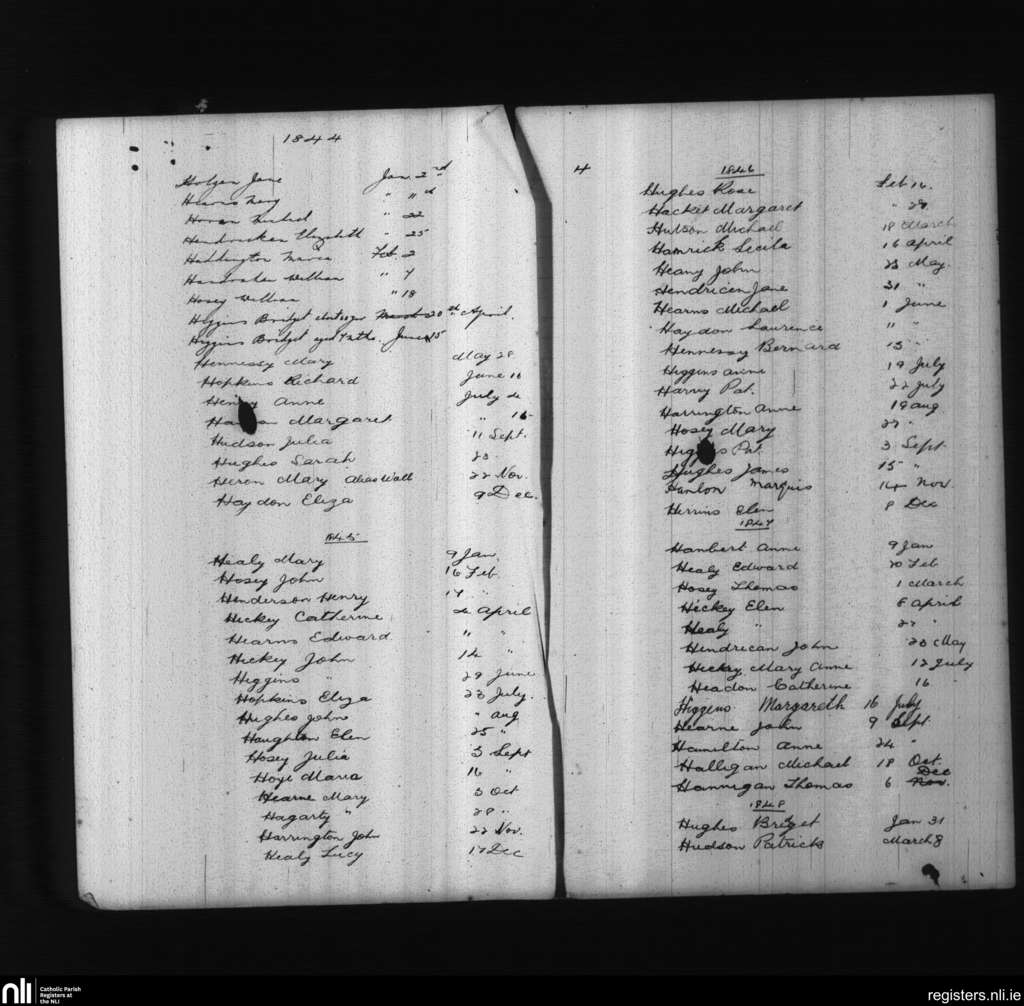 1844
Holgen Jane Jan. 2nd
Hearns Mary " 11th
Horan Michael " 22
Hendricken Elizabeth " 25
Haddington Maria Feb. 2
William " 7
Hosey William " 18
Higgins Bridget 20th April.
Higgins Bridget June 15
Hennessy Mary May 28
Hopkins Richard June 16
Henry Anne July 4
Margaret " 16
Hudson Julia 11 Sept.
Hughes Sarah 23
Heron Mary alias Wall 22 Nov.
Haydon Eliza 9 Dec.
1845
Healy Mary 9 Jan.
Hosey John 16 Feb.
Henderson Henry 17 "
Hickey Catherine 2 April
Hearns Edward " "
Hickey John 14 "
Higgins " 29 June
Hopkins Eliza 23 July.
Hughes John " aug
Haughton Elen 25 "
Hosey Julia 3 Sept
Hoye Maria 16 "
Hearne Mary 3 Oct
Hagarty " 28 "
Harrington John 22 Nov.
Healy Lucy 17 Dec
H
1846
Hughes Rose Feb 16.
Hacket Margaret " 28
Hutson Michael 18 March
Hamrick Secila 16 April
Heany John 23 May.
Hendricen Jane 31 "
Hearns Michael 1 June
Haydon Laurence " "
Hennessy Bernard 15 "
Higgins anne 19 July
Harvy Pat. 22 July
Harrington Anne 19 aug
Hosey Mary 27 "
Higgins Pat. 3 Sept
Hughes James 15 "
Hanlon Marquis 14 Nov.
Herrins Elen 8 Dec
1847
Hambert Anne 9 Jan
Healy Edward 20 Feb
Hosey Thomas 1 March
Hickey Elen 5 April
Healy " 22 "
Hendrican John 23 May
Hickey Mary Anne 12 July
Headon Catherine 16 "
Higgins Margareth 16 July
Hearne John 9 Sept.
Hamilton Anne 24 "
Halligan Michael 18 Oct.
Dec
Hannigan Thomas 6 Nov.
1848
Hughes Bridget Jan 31
Hudson Patrick March 8
nli
Catholic Parish
Registers at
the NLI
registers.nli.ie